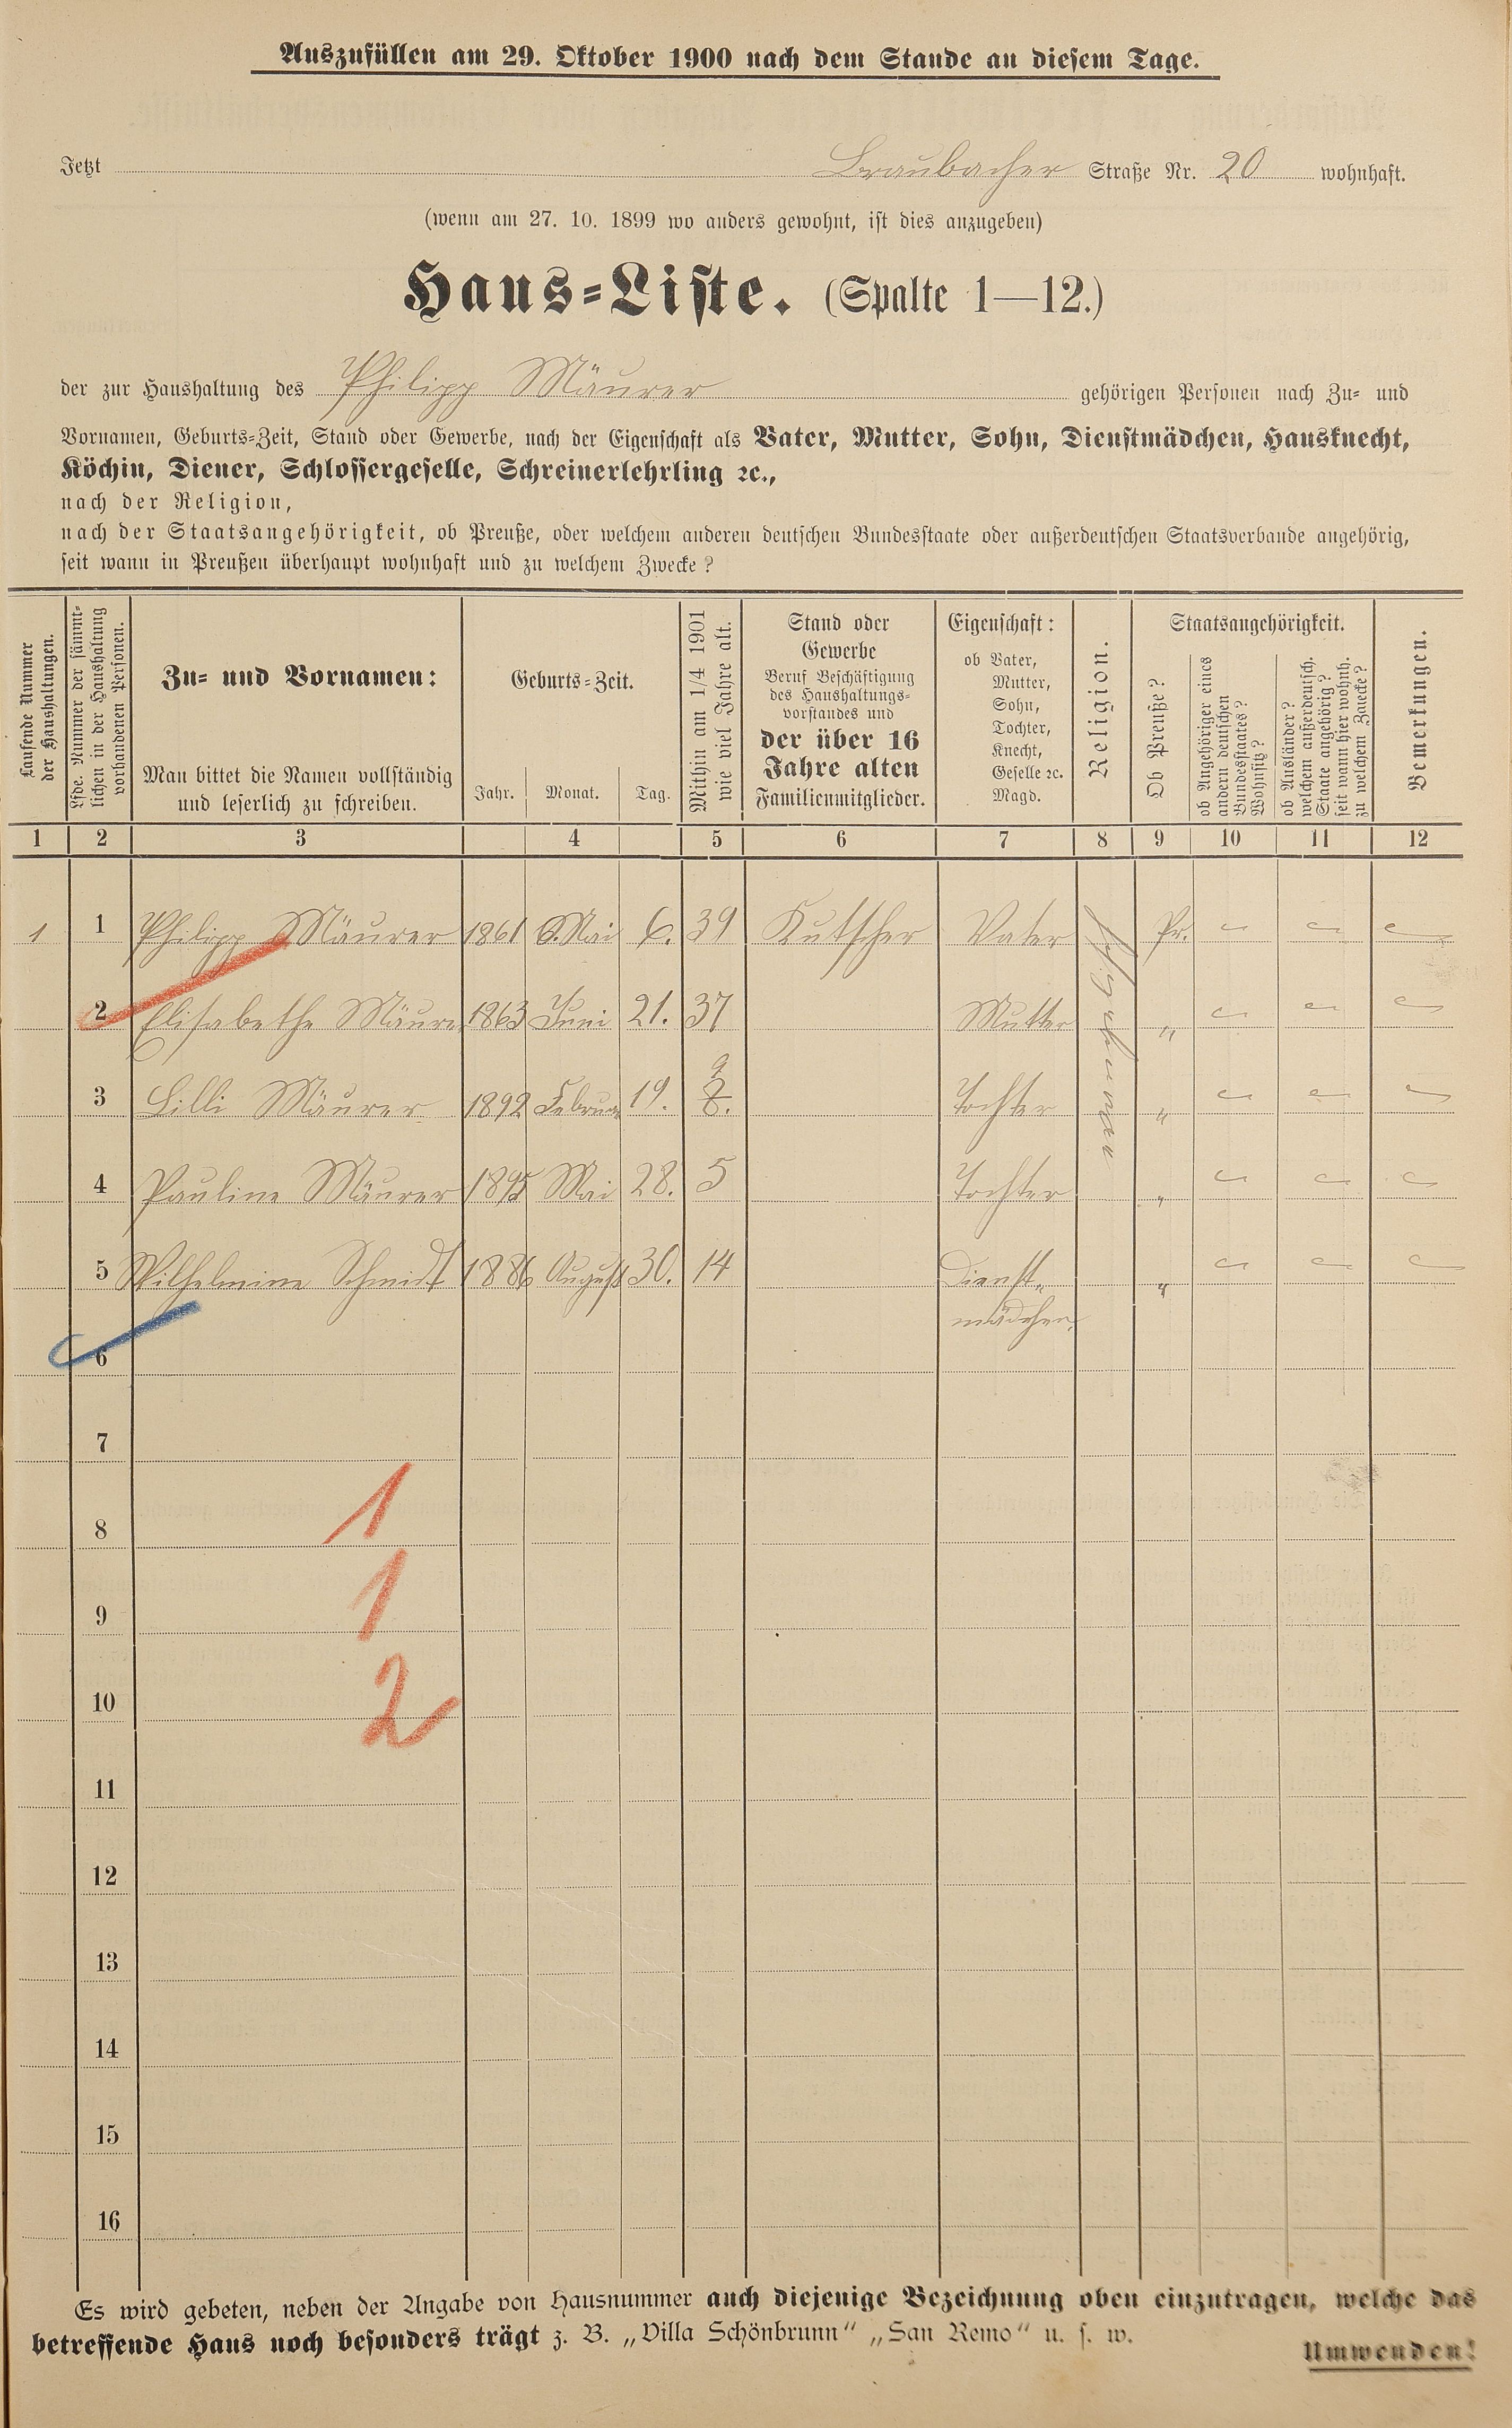 Auszufüllen am 29. Oktober 1900 nach dem Stande an diesem Tage.
Jetzt Braubacher Straße Nr. 20 wohnhaft.
(wenn am 27. 10. 1899 wo anders gewohnt, ist dies anzugeben)
Haus=Liste. (Spalte 1—12.)
der zur Haushaltung des Philipp Mäurer gehörigen Personen nach Zu= und
Vornamen, Geburts=Zeit, Stand oder Gewerbe, nach der Eigenschaft als Vater, Mutter, Sohn, Dienstmädchen, Hausknecht,
Köchin, Diener, Schlossergeselle, Schreinerlehrling ꝛc.,
nach der Religion,
nach der Staatsangehörigkeit, ob Preuße, oder welchem anderen deutschen Bundesstaate oder außerdeutschen Staatsverbande angehörig,
seit wann in Preußen überhaupt wohnhaft und zu welchem Zwecke?
Laufende Nummer
der Haushaltungen.
Lfde. Nummer der sämmt=
lichen in der Haushaltung
vorhandenen Personen.
Zu= und Vornamen:
Man bittet die Namen vollständig
und leserlich zu schreiben.
Geburts=Zeit.
Jahr. Monat. Tag.
Mithin am 1/4 1901
wie viel Jahre alt.
Stand oder
Gewerbe
Beruf Beschäftigung
des Haushaltungs=
vorstandes und
der über 16
Jahre alten
Familienmitglieder.
Eigenschaft:
ob Vater,
Mutter,
Sohn,
Tochter,
Knecht,
Geselle ꝛc.
Magd.
Religion.
Staatsangehörigkeit.
Ob Preuße?
ob Angehöriger eines
andern deutschen
Bundesstaates?
Wohnsitz?
ob Ausländer?
welchem außerdeutsch.
Staate angehörig?
seit wann hier wohnh.
zu welchem Zwecke?
Bemerkungen.
1 2 3 4 5 6 7 8 9 10 11 12
1 1 Philipp Mäurer 1861 Mai 6. 39 Kutscher Vater Pr.
2 Elisabethe Mäurer 1863 Juni 21. 37 Mutter "
3 Lilli Mäurer 1892 Februar 19. 9 8. Tochter "
4 Pauline Mäurer 1895 Mai 28. 5 Tochter "
5 Wilhelmine Schmidt 1886 August 30. 14 Dienst=
mädchen "
6
7
8 1
9 1
10 2
11
12
13
14
15
16
Es wird gebeten, neben der Angabe von Hausnummer auch diejenige Bezeichnung oben einzutragen, welche das
betreffende Haus noch besonders trägt z. B. „Villa Schönbrunn“ „San Remo“ u. s. w.
Umwenden!